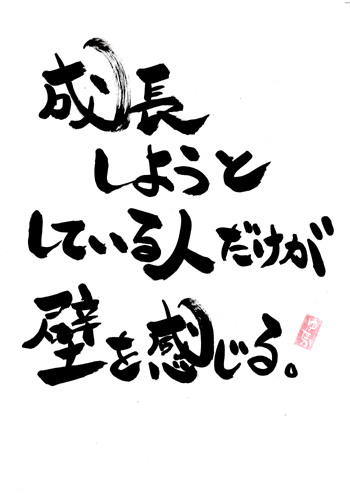 成長
しようと
している人だけが
壁を感じる。